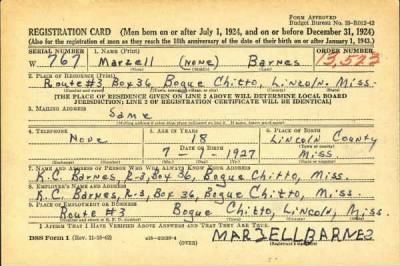 FORM APPROVED
Budget Bureau No. 33-R012-42
REGISTRATION CARD (Men born on or after July 1, 1924, and on or before December 31, 1924)
(Also for the registration of men as they reach the 18th anniversary of the date of their birth on or after January 1, 1943.)
SERIAL NUMBER 1. NAME (Print) ORDER NUMBER
W 767 Marzell (none) Barnes 13,523
(First) (Middle) (Last)
2. PLACE OF RESIDENCE (Print)
Route #3 Box 36, Bogue Chitto, Lincoln, Miss.
[THE PLACE OF RESIDENCE GIVEN ON LINE 2 ABOVE WILL DETERMINE LOCAL BOARD
JURISDICTION; LINE 2 OF REGISTRATION CERTIFICATE WILL BE IDENTICAL]
3. MAILING ADDRESS
Same
4. TELEPHONE 5. AGE IN YEARS 6. PLACE OF BIRTH
None 18 Lincoln County
DATE OF BIRTH
7-1-1927 Miss.
7. NAME AND ADDRESS OF PERSON WHO WILL ALWAYS KNOW YOUR ADDRESS
K.C. Barnes, R-3, Box 36, Bogue Chitto, Miss.
8. EMPLOYER'S NAME AND ADDRESS
K.C. Barnes, R-3, Box 36, Bogue Chitto, Miss.
9. PLACE OF EMPLOYMENT OR BUSINESS
Route #3 Bogue Chitto, Lincoln, Miss.
I AFFIRM THAT I HAVE VERIFIED ABOVE ANSWERS AND THAT THEY ARE TRUE.
DSS Form 1 (OVER) MARZELL BARNES